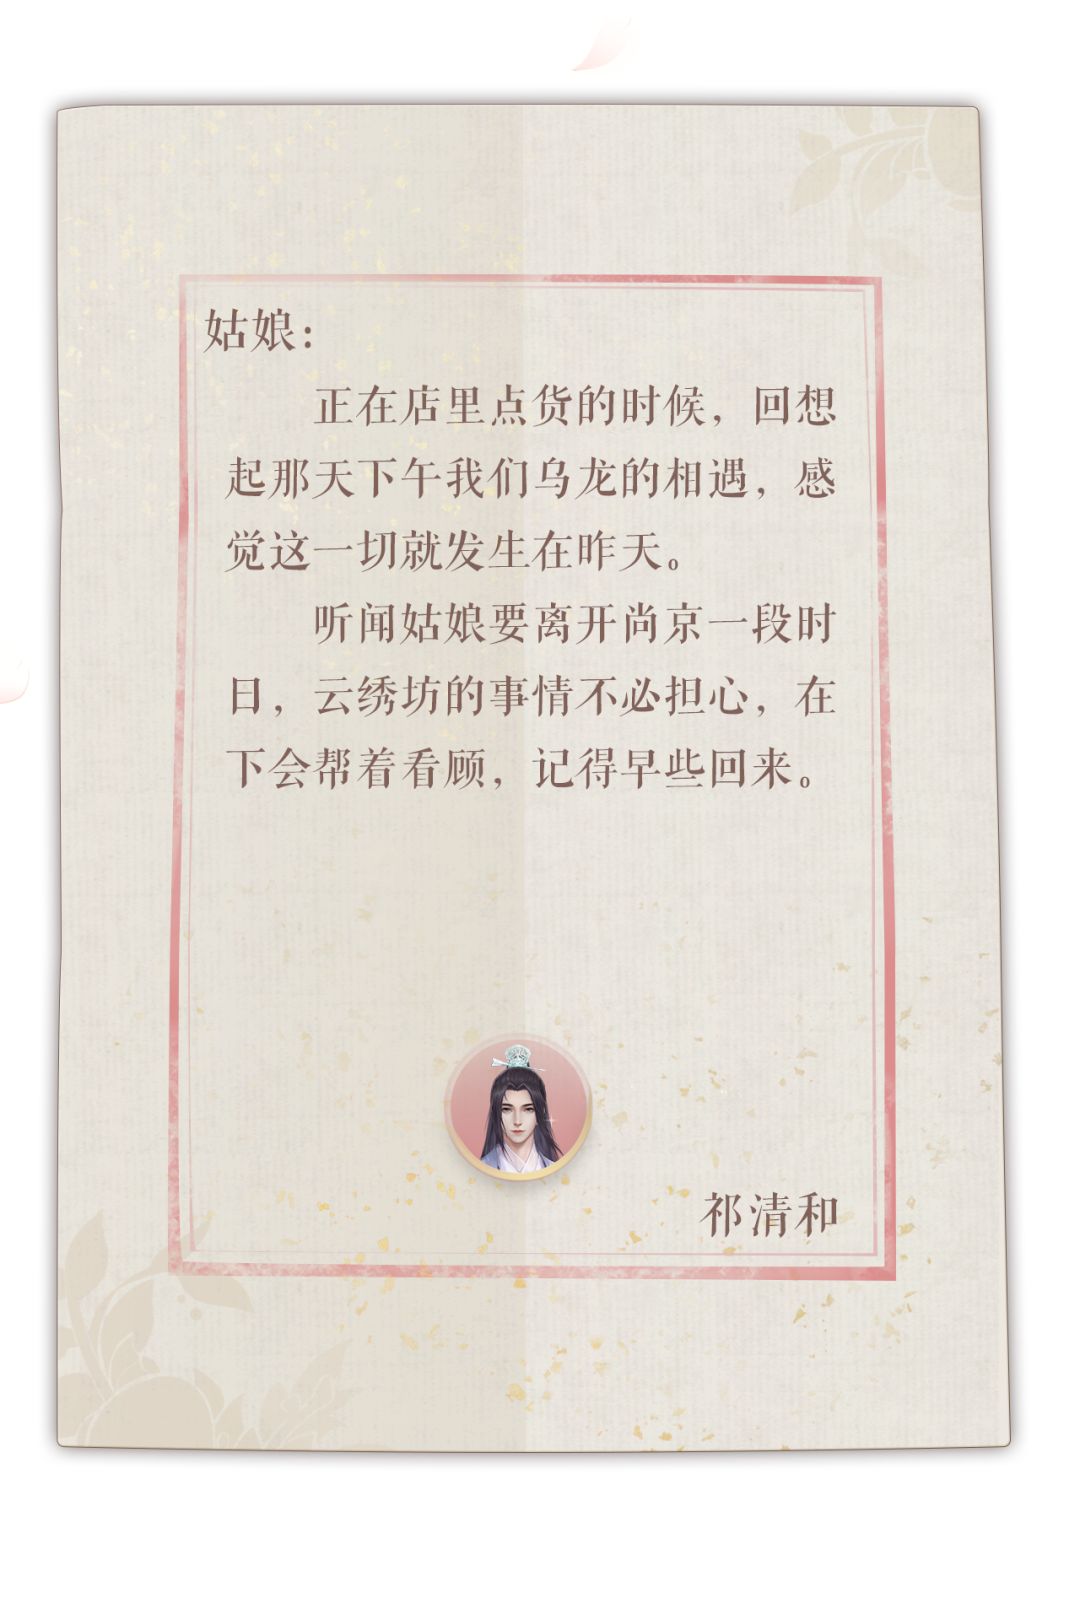 姑娘：
正在店里点货的时候，回想
起那天下午我们乌龙的相遇，感
觉这一切就发生在昨天。
听闻姑娘要离开尚京一段时
日，云绣坊的事情不必担心，在
下会帮着看顾，记得早些回来。
祁清和